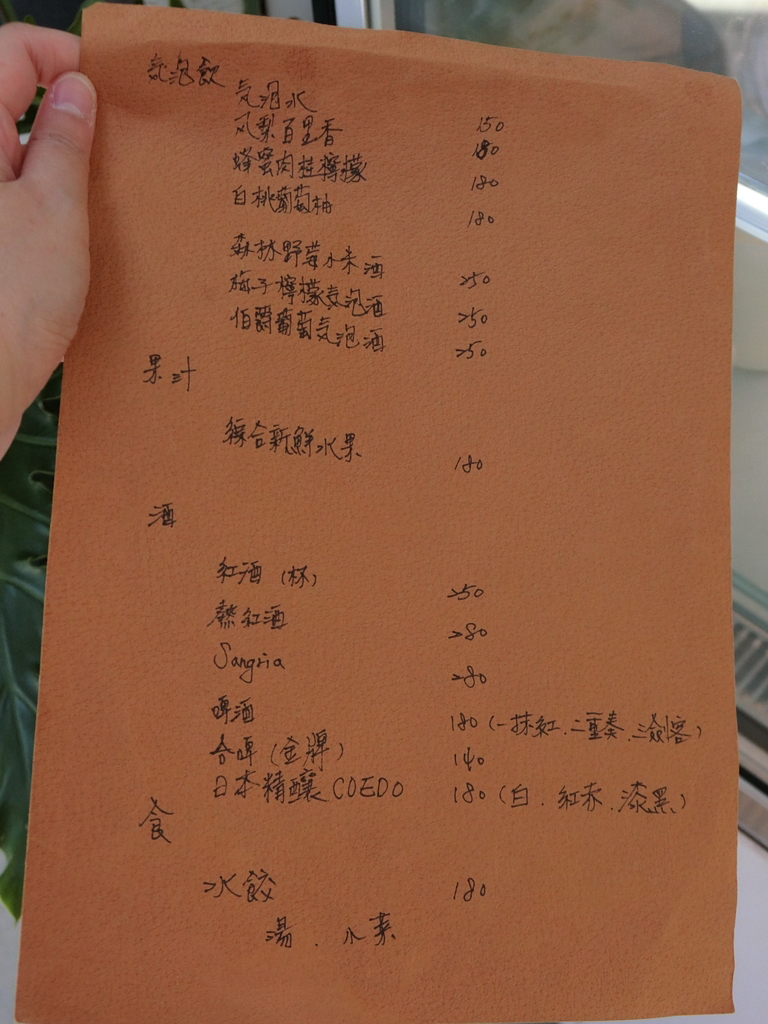 氣泡飲
気泡水 150
凤梨百里香 180
蜂蜜肉桂檸檬 180
白桃葡萄柚 180
森林野莓小米酒 250
梅子檸檬氣泡酒 250
伯爵葡萄気泡酒 250
果汁
綜合新鮮水果 180
酒
紅酒 (杯) 250
熱紅酒 280
Sangria 280
啤酒 180 (一抹紅.二重奏.三劍客)
台啤 (金牌) 140
日本精釀 COEDO 180 (白.紅赤.漆黑)
食
水餃 180
湯.小菜